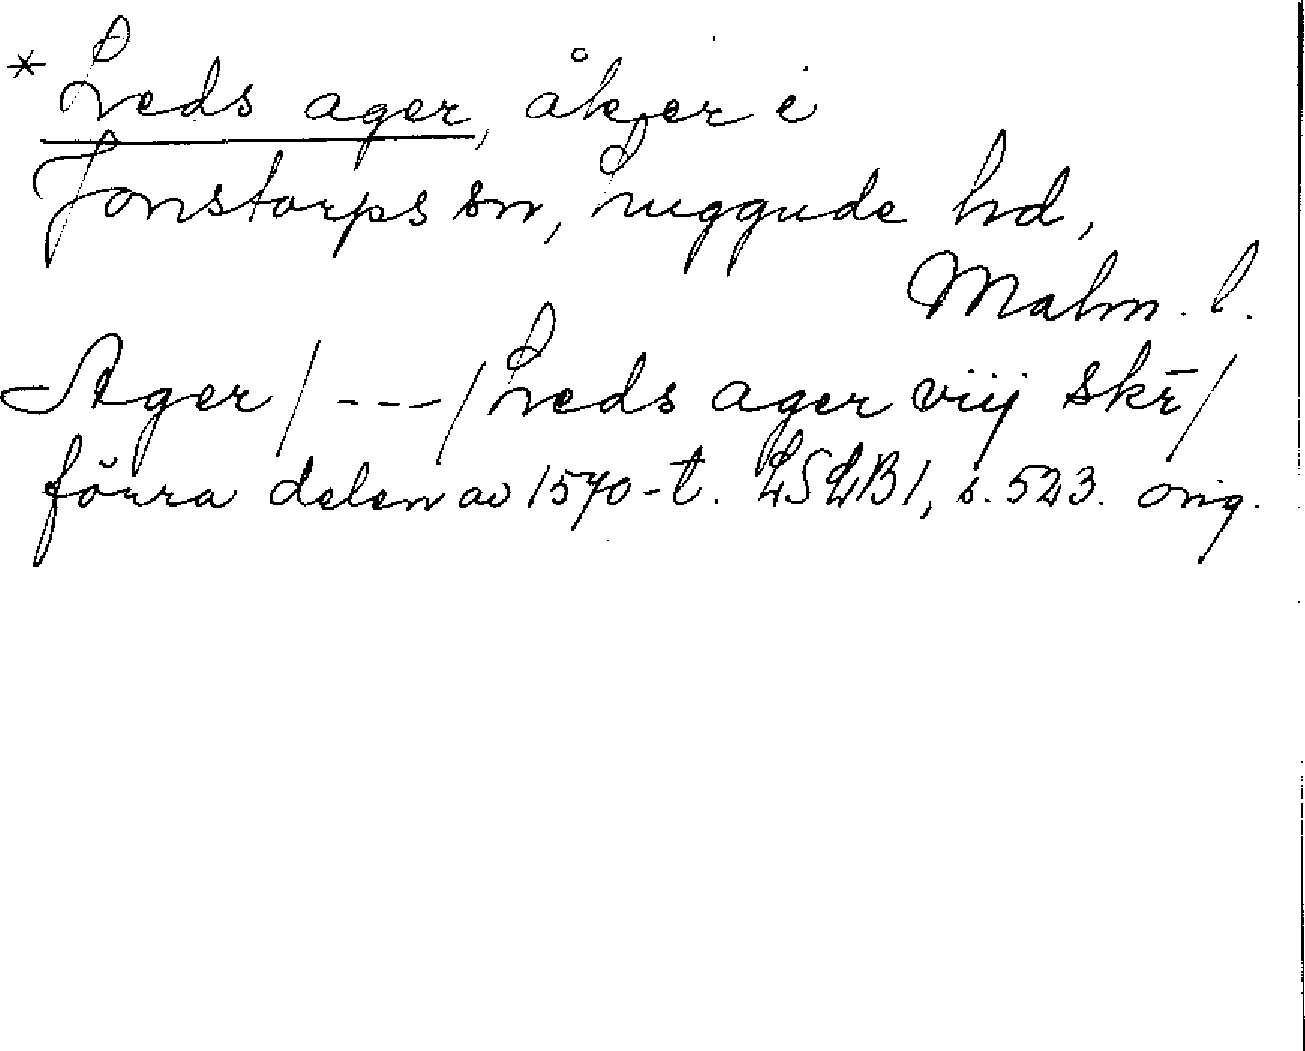 * Leds ager, åker i
Jonstorps sn, Luggude hd,
Malm. l.
Ager / --- / Leds ager viij skr̄ /
förra delen av 1570-t. LSLB 1, s. 523. orig.